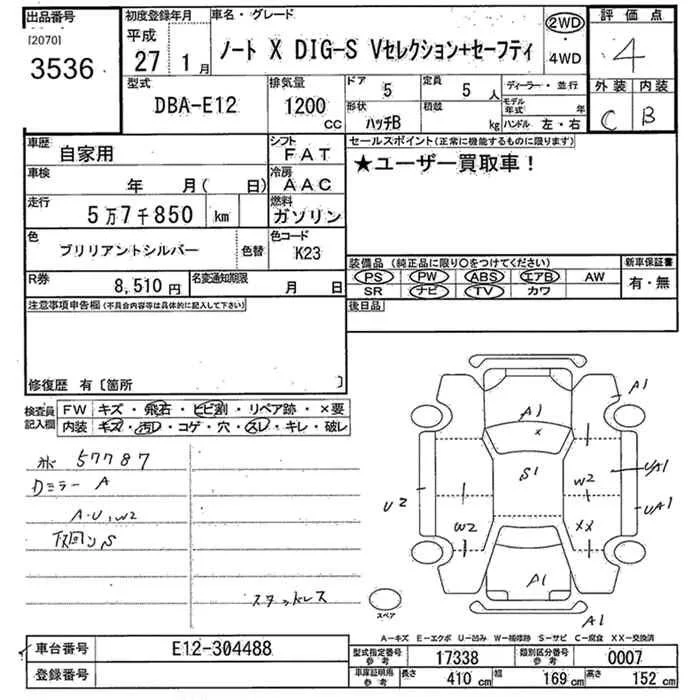 出品番号
[2070]
3536
初度登録年月
平成
27 1月
車名・グレード
ノート X DIG-S Vセレクション+セーフティ
2WD
・
4WD
評価点
4
外装 内装
C B
型式
DBA-E12
排気量
1200 cc
ドア 5
定員 5人
形状 ハッチB
積載 kg
ディーラー・並行
モデル年式 年
ハンドル 左・右
車歴 自家用
シフト FAT
車検 年 月( 日)
冷房 AAC
走行 5万7千850 km
燃料 ガソリン
色 ブリリアントシルバー 色替
色コード K23
R券 8,510円
名変通知期限 月 日
セールスポイント(正常に機能するものに限ります)
★ユーザー買取車!
装備品(純正品に限り○をつけてください)
PS PW ABS エアB AW
SR ナビ TV カワ
新車保証書
有・無
後日品
注意事項申告欄(不具合内容等は具体的に記入して下さい)
修復歴 有〔箇所 〕
検査員記入欄
FW キズ・飛石・ヒビ割・リペア跡・×要
内装 キズ・汚レ・コゲ・穴・スレ・キレ・破レ
57787
ミラー A
A・U,W2
下回りS
スタッドレス
A1
A1
x
S1
W2
UA1
UA1
U2
W2
XX
A1
A1
スペア
A-キズ E-エクボ U-凹み W-補修跡 S-サビ C-腐食 XX-交換済
車台番号 E12-304488
登録番号
型式指定番号 参考 17338
類別区分番号 参考 0007
車庫証明用 参考 長さ 410cm 幅 169cm 高さ 152cm